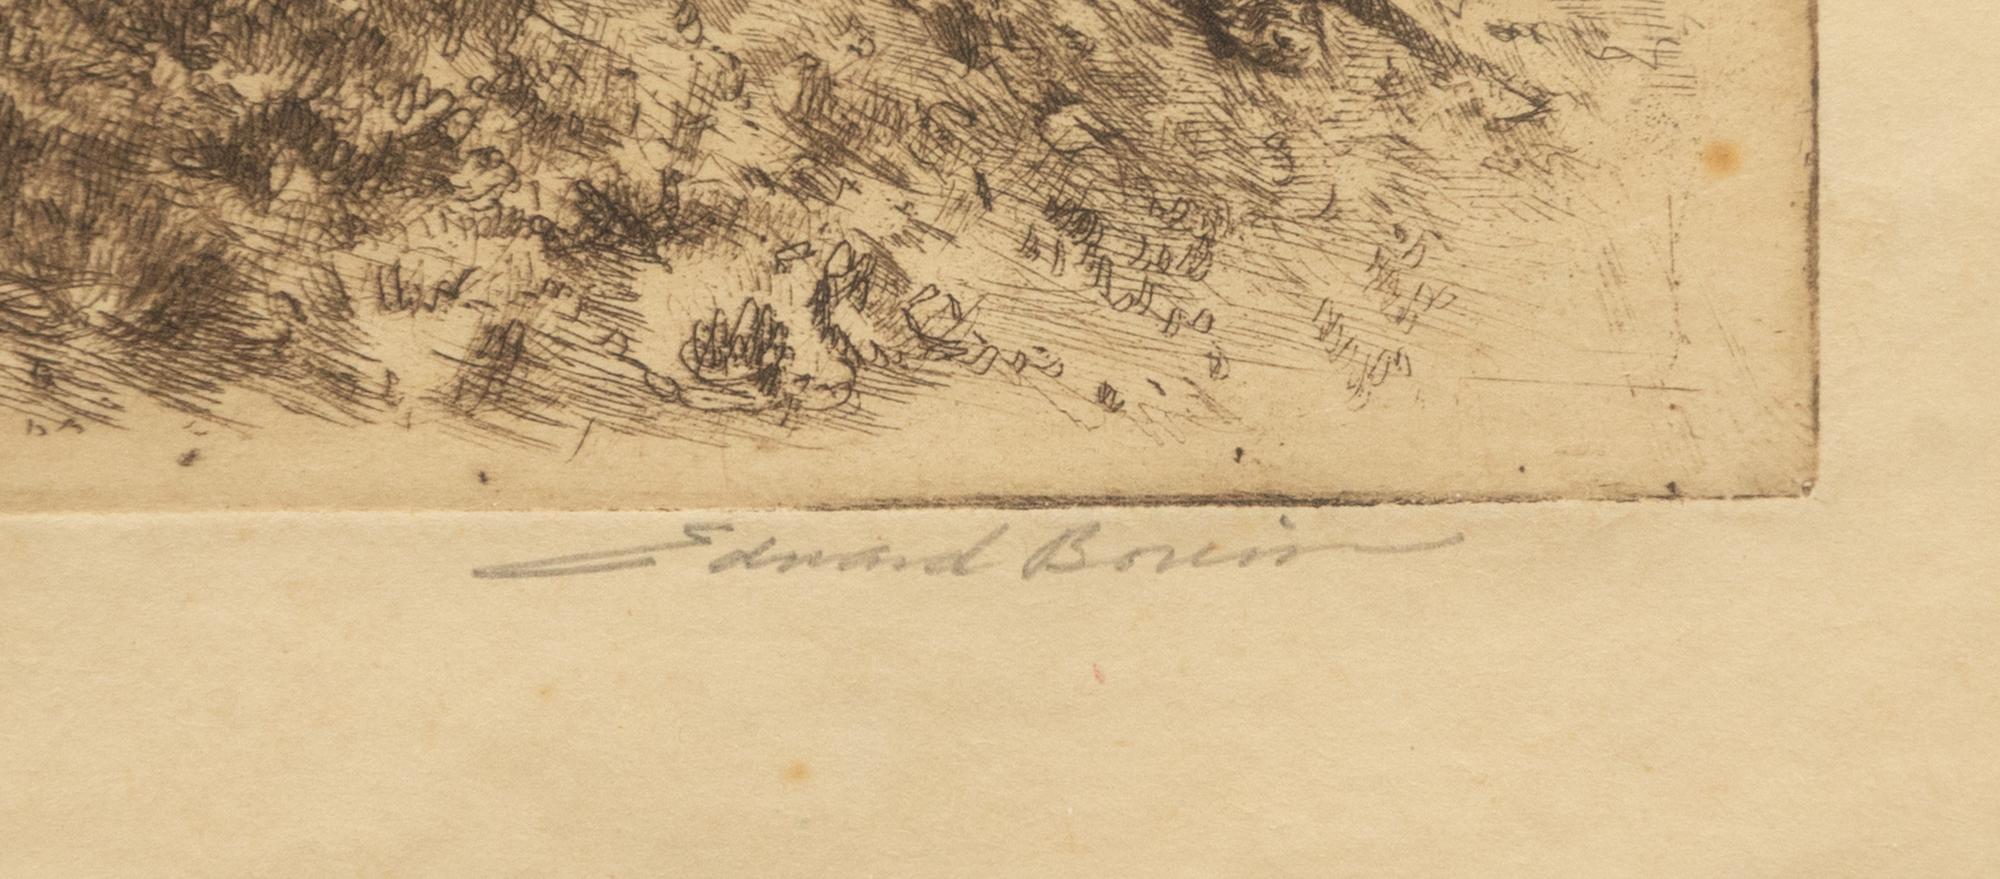 Edward Borein